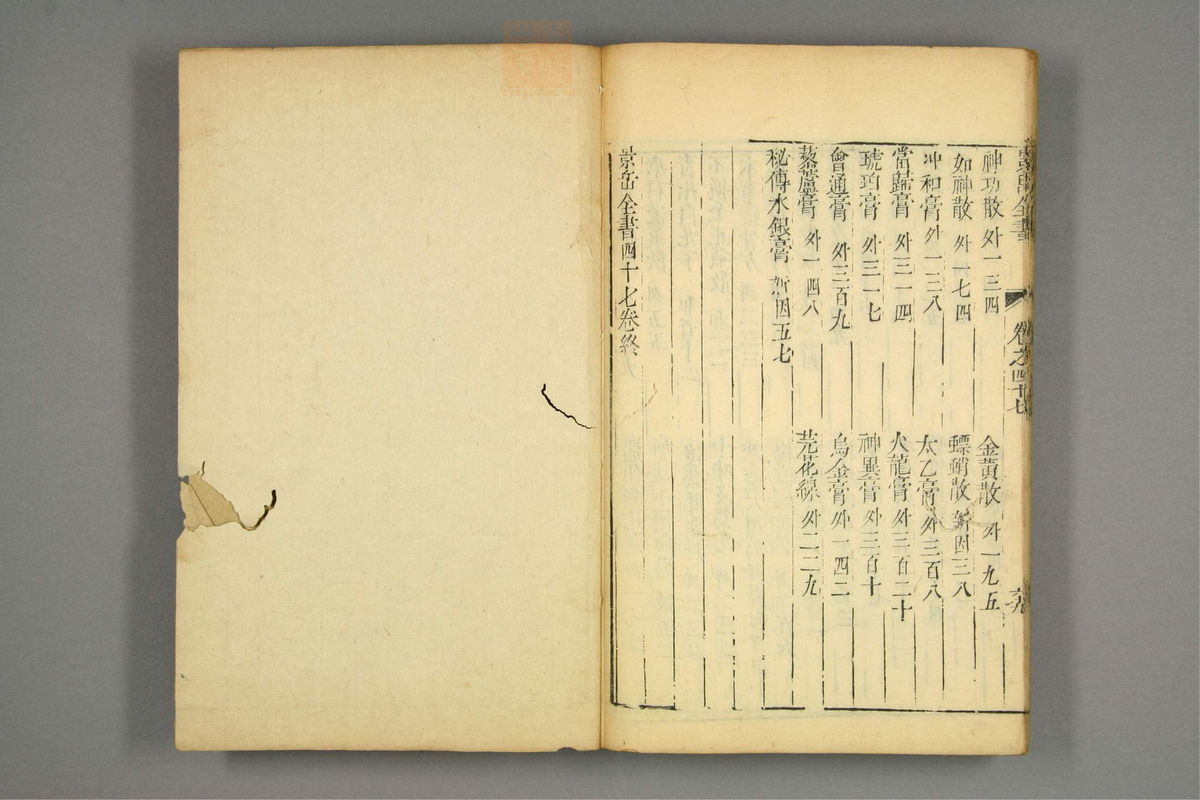 景岳全書 卷之四十七 六九
神功散 外一三四 金黃散 外一九五
如神散 外七四 螵蛸散 新因三八
冲和膏 外一三八 太乙膏 外三百八
當歸膏 外三一四 火龍膏 外三百二十
琥珀膏 外三一七 神異膏 外三百十
會通膏 外三百九 烏金膏 外一四二
藜蘆膏 外一四八 芫花線 外二二九
秘傳水銀膏 新因五七
景岳全書四十七卷終